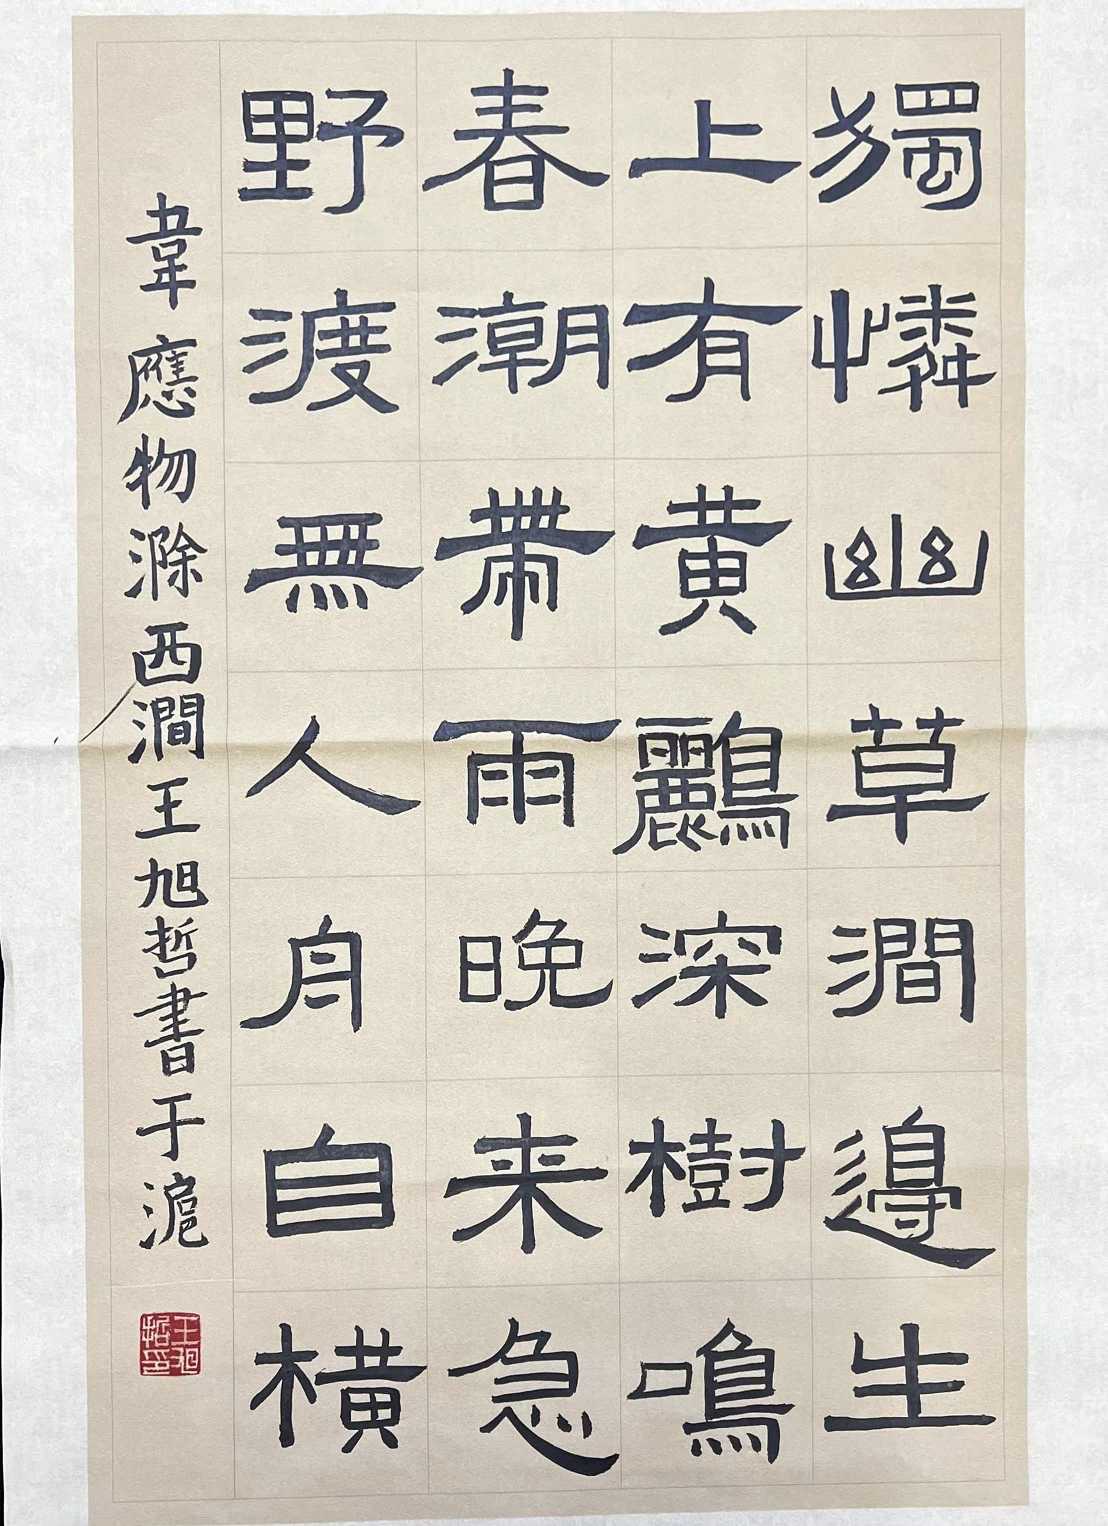 獨憐幽草澗邊生
上有黄鸝深樹鳴
春潮帶雨晚来急
野渡無人舟自橫
韋應物滁西澗王旭哲書于滬
王旭哲印